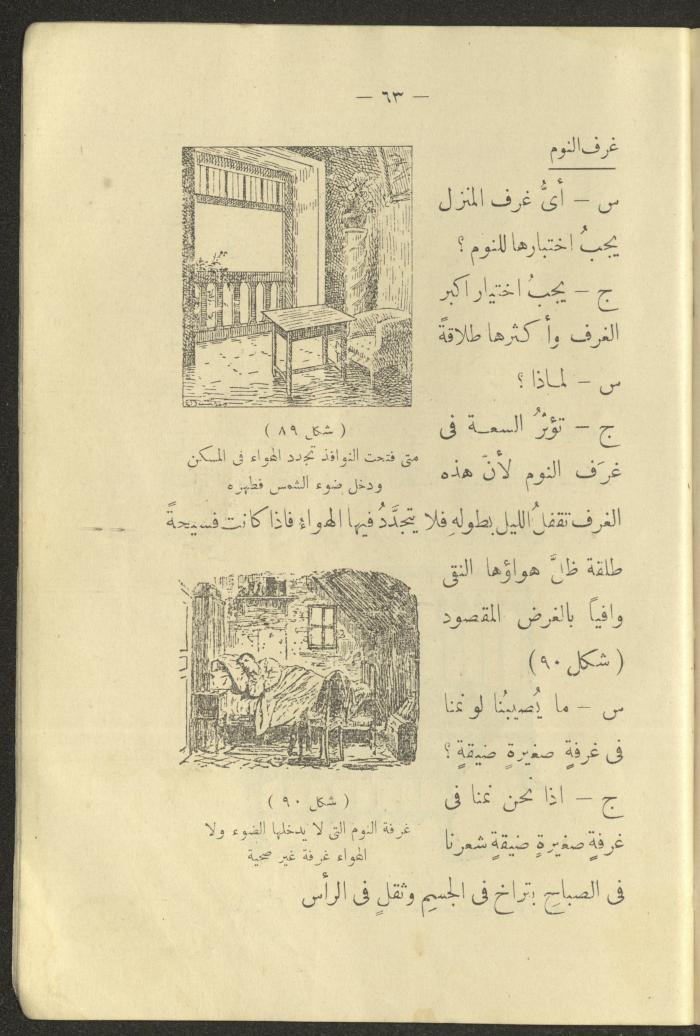 — ٦٣ —
غرف النوم
س — أىُّ غرف المنزل
يجبُ اختبارها للنوم ؟
ج — يجبُ اختيار اكبر
الغرف وأكثرها طلاقةً
س — لماذا ؟
ج — تؤثرُ السعة فى
غرَف النوم لأنّ هذه
الغرف تقفلُ الليل بطولهِ فلا يتجدَّدُ فيها الهواء فاذا كانت فسيحةً
طلقة ظلَّ هواؤها النقى
وافياً بالغرض المقصود
( شكل ٩٠ )
س — ما يُصيبنُا لو نمنا
فى غرفةٍ صغيرةٍ ضيقةٍ ؟
ج — اذا نحن نمنا فى
غرفةٍ صغيرةٍ ضيقةٍ شعرنا
فى الصباحِ بتراخ فى الجسمِ وثقلٍ فى الرأس
( شكل ٨٩ )
متى فتحت النوافذ تجدد الهواء فى المسكن
ودخل ضوء الشمس فطهره
( شكل ٩٠ )
غرفة النوم التى لا يدخلها الضوء ولا
الهواء غرفة غير صحية